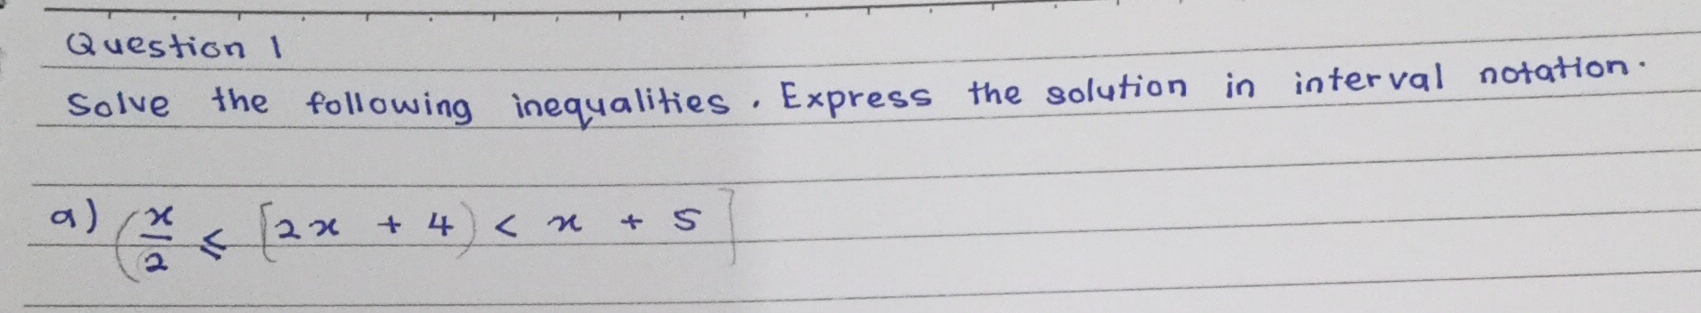 Question 1
Solve the following inequalities. Express the solution in interval notation.
a) (x/2 ≤ [2x + 4) < x + 5]